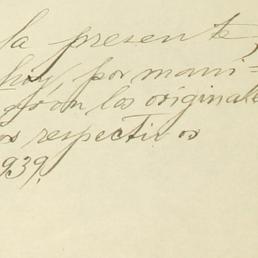 la presente,
hoy, por mani=
con los originale
os respectivos
939.